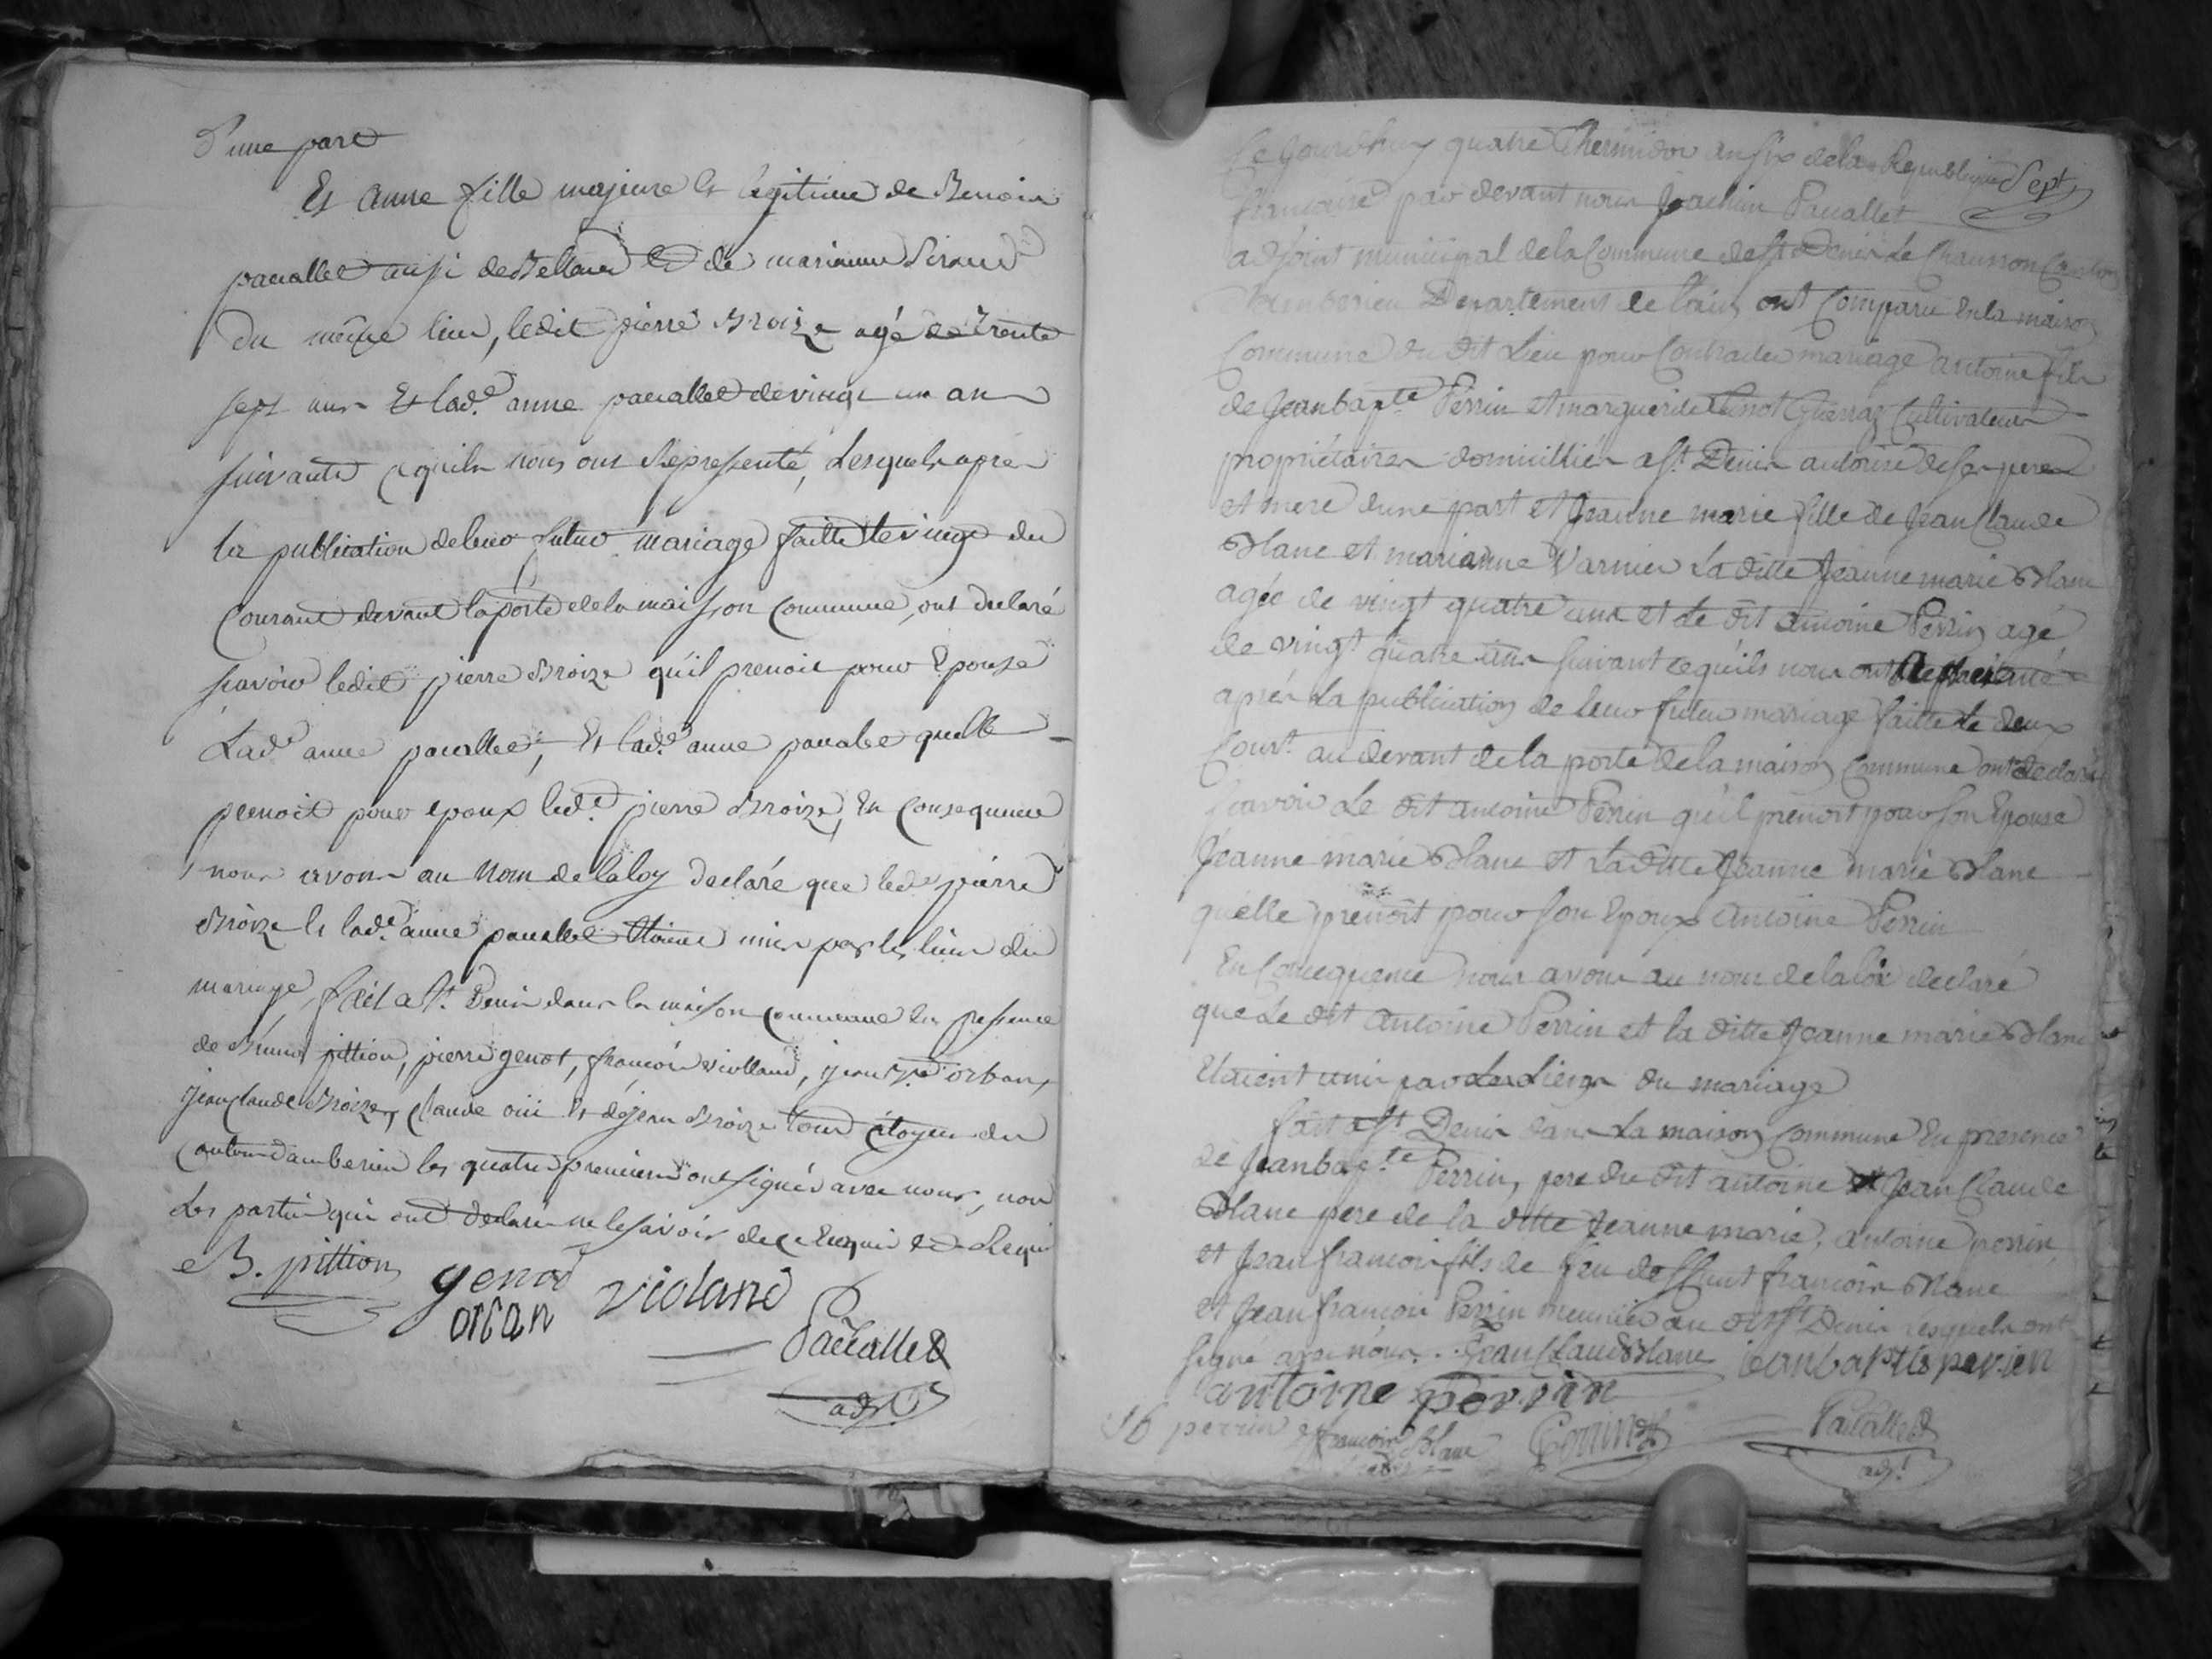 d'une part
Et anne fille majeure et legitime de Benoit
pacallet aussi de et de marianne
du même lieu, ledit pierre Broize agé de trente
sept ans Et lad.e anne pacallet de vingt un an
suivante ce quils nous ont Representé, Lesquels apres
la publication de leur futur mariage faitte le vingt du
Courant devant la porte de la maison Commune, ont declaré
scavoir ledit pierre Broize qu'il prenoit pour Epouse
Lad.e anne pacallet, Et lad.e anne pacalet quelle
prenoit pour epoux led.t pierre Broize, En Consequence
nous avons au Nom de la loy declaré que led.t pierre
Broize Et lad.e anne pacallet Etoient unis par les liens du
mariage, fait a St. Denis dans la maison commune En presence
de pittion, pierre genot, françois violland, orban,
jean Claude Broize, Claude et jean Broize tous citoyens du
Canton d'amberieu les quatre premiers ont signés avec nous, non
Les parties qui ont declaré ne le savoir de ce Enquis Et Requis
B. pittion genod violand
orban
Pacallet
adj.t
Sept
Ce Jourdhuy quatre Thermidor an six de la Republique
francaise par devant nous Joachim Pacallet
adjoint municipal de la Commune de St Denis Le Chausson Canton
d'amberieu Departement de l'ain ont Comparu En la maison
Commune du dit Lieu pour Contracter mariage antoine fils
de Jean bapte Perrin et marguerite Genot Cultivateurs
propriétaires domicilliés a St. Denis autorisé de ses pere
et mere dune part et Jeanne marie fille de Jean Claude
Blanc et marianne Varnier La ditte Jeanne marie Blanc
agée de vingt quatre ans et le dit antoine Perrin agé
de vingt quatre ans suivant ce quils nous ont
aprés La publication de leur futur mariage faitte Le deux
Cour.t au devant de la porte de la maison Commune ont declaré
scavoir Le dit antoine Perrin qu'il prenoit pour son Epouse
Jeanne marie Blanc et La ditte Jeanne marie Blanc
quélle prenoit pour son Epoux Antoine Perrin
En Consequence nous avons au nom de la loi declaré
que Le dit Antoine Perrin et la ditte Jeanne marie Blanc
Etaient unis par les Liens du mariage
fait a St Denis dans La maison Commune En presence
de Jean bapte Perrin, pere du dit antoine et Jean Claude
Blanc pere de la ditte Jeanne marie, antoine perrin
et Jean francois fils de feu deffunt francois Blanc
et Jean francois Perrin meunier au dit St Denis lesquels ont
signe avec nous. Jean Claude Blanc jean baptis perrien
antoine perrin
perrin francois Blanc Pacallet
adj.t